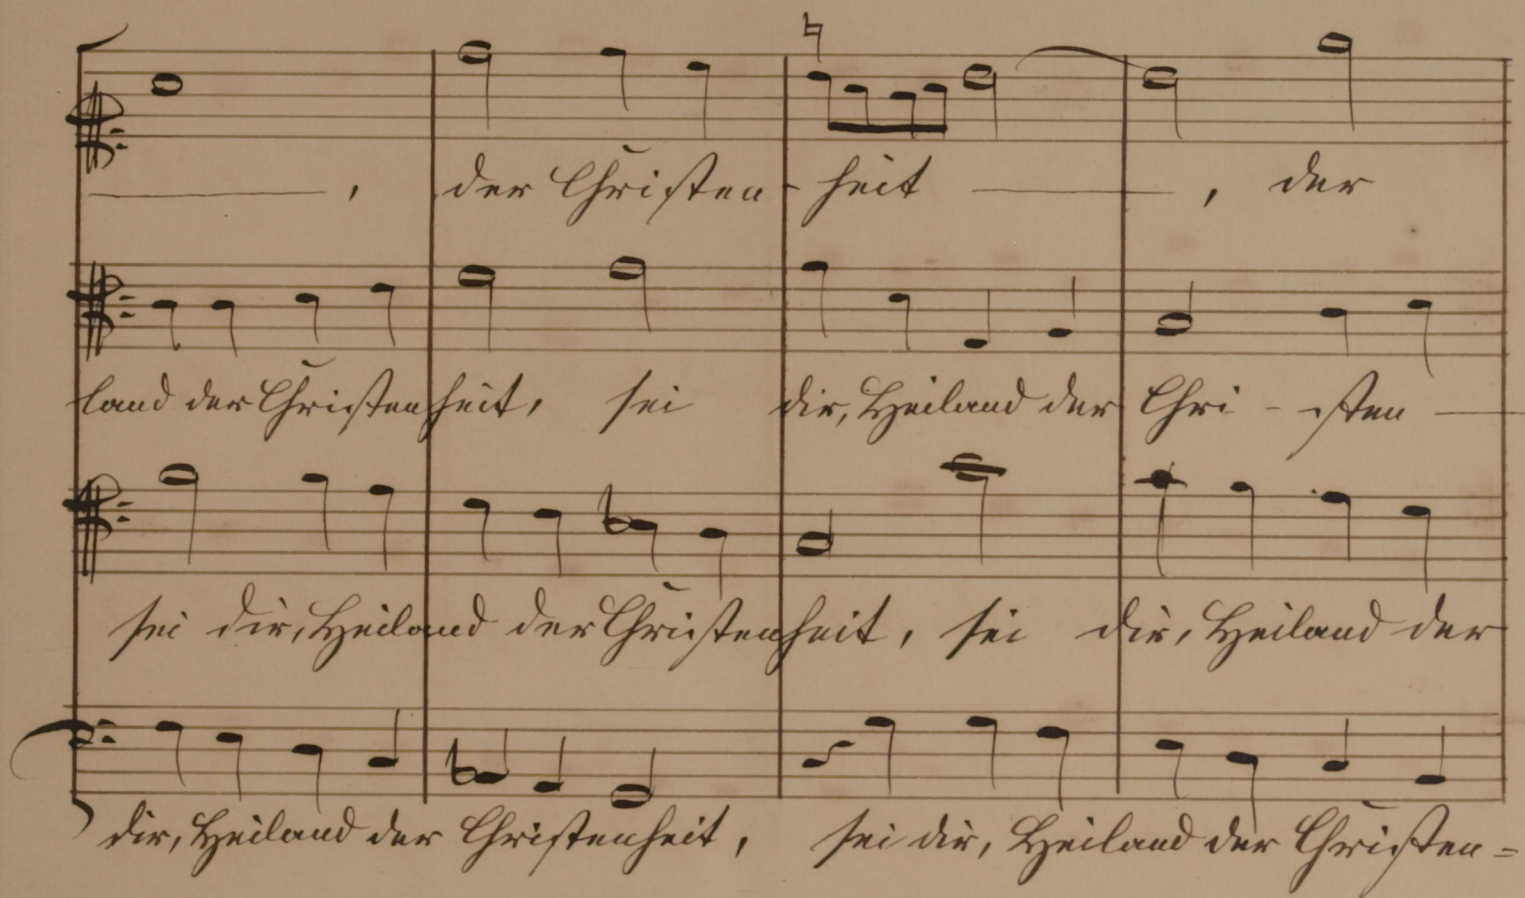 , der Christen - heit , der
land der Christenheit, sei dir, Heiland der Chri - sten
sei dir, Heiland der Christenheit, sei dir, Heiland der
dir, Heiland der Christenheit, sei dir, Heiland der Christen=